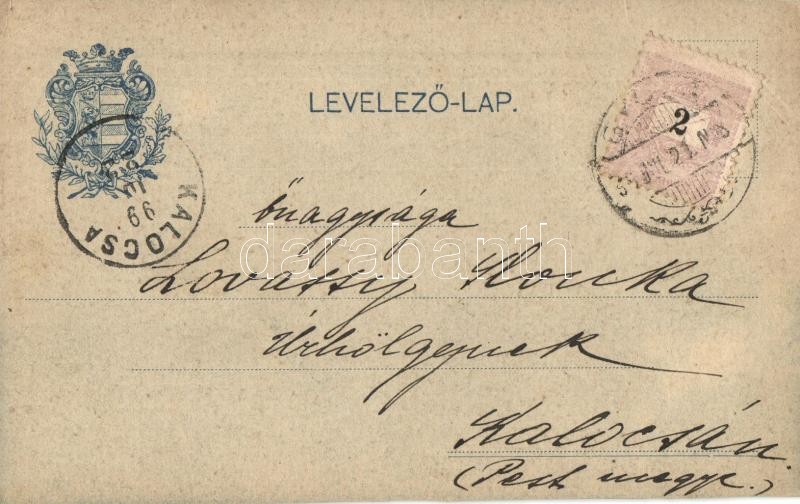 LEVELEZŐ-LAP.
2
KALOCSA
99
őnagysága
Lovassy Ilonka
Úrhölgynek
Kalocsán.
(Pest megye.)
darabanth